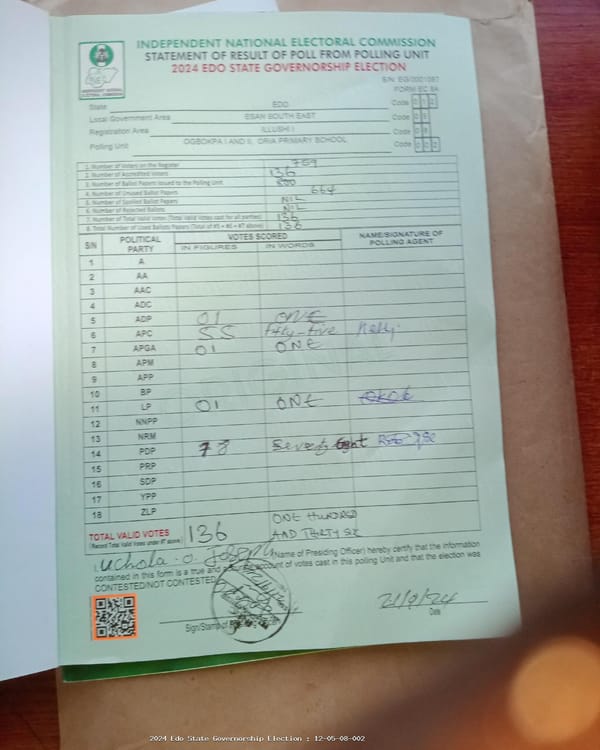 INDEPENDENT NATIONAL ELECTORAL COMMISSION
STATEMENT OF RESULT OF POLL FROM POLLING UNIT
2024 EDO STATE GOVERNORSHIP ELECTION
INDEPENDENT NATIONAL ELECTORAL COMMISSION
FORM EC 8A
State EDO Code 1 2
Local Government Area ESAN SOUTH EAST Code 0 5
Registration Area ILLUSHI I Code 0 8
Polling Unit OGBOKPA I AND II, ORIA PRIMARY SCHOOL Code 0 0 2
1. Number of Voters on the Register 759
2. Number of Accredited Voters 136
3. Number of Ballot Papers Issued to the Polling Unit 800
4. Number of Unused Ballot Papers 664
5. Number of Spoiled Ballot Papers NIL
6. Number of Rejected Ballots NIL
7. Number of Total Valid Votes (Total Valid Votes cast for all parties) 136
8. Total Number of Used Ballots Papers (Total of #5 + #6 + #7 above) 136
S/N POLITICAL PARTY VOTES SCORED NAME/SIGNATURE OF POLLING AGENT
IN FIGURES IN WORDS
1 A
2 AA
3 AAC
4 ADC
5 ADP 01 ONE
6 APC 55 fifty-five
7 APGA 01 ONE
8 APM
9 APP
10 BP
11 LP 01 ONE
12 NNPP
13 NRM
14 PDP 78 Seventy Eight
15 PRP
16 SDP
17 YPP
18 ZLP
TOTAL VALID VOTES 136 ONE HUNDRED AND THIRTY SIX
(Record Total Valid Votes under #7 above)
I, Uchola .O. Joseph (Name of Presiding Officer) hereby certify that the information
contained in this form is a true and account of votes cast in this polling Unit and that the election was
CONTESTED/NOT CONTESTED.
Sign/Stamp of
21/9/24
Date
2024 Edo State Governorship Election : 12-05-08-002